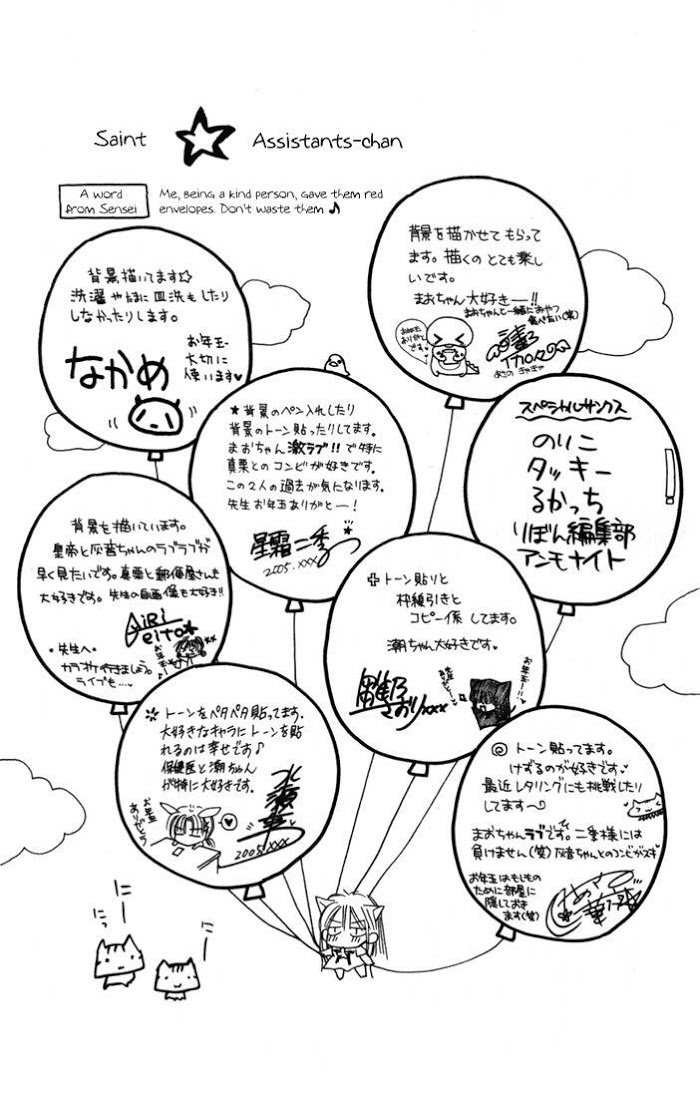 Saint ☆ Assistants-chan
A word
from Sensei
Me, being a kind person, gave them red
envelopes. Don't waste them ♪
背景を描かせてもらって
ます。描くのとても楽し
いです。
まおちゃん大好きー!!
まおちゃんと一緒におやつ
食べたい(笑)
お年玉
ありがと
です
背景描いてます☆
洗濯やたまに皿洗もしたり
しなかったりします。
なかめ
お年玉
大切に
使います♥
★背景のペン入れしたり
背景のトーン貼ったりしてます。
まおちゃん激ラブ!!で特に
真栗とのコンビが好きです。
この2人の過去が気になります。
先生お年玉ありがとー!
星霜二季
2005.xxx
スペシャルサンクス
のりこ
タッキー
るかっち
りぼん編集部
アンモナイト
背景を描いています。
皇帝と灰音ちゃんのラブラブが
早く見たいです。真栗と郵便屋さんも
大好きです。先生の自画像も大好き!!
AiRi
eito
・先生へ・
カラオケ行きましょう。
ライブも…
トーン貼りと
枠線引きと
コピー係してます。
潮ちゃん大好きです♥
さおりxxx
お年玉
トーンをペタペタ貼ってます.
大好きなキャラにトーンを貼
れるのは幸せです♪
保健医と潮ちゃん
が特に大好きです。
お年玉
ありがとう
2005.xxx
◎トーン貼ってます。
けずるのが好きです♥
最近レタリングにも挑戦したり
してます〜
まおちゃんラブです。二季様には
負けません(笑)灰音ちゃんとのコンビがスキ
お年玉はもしもの
ために部屋に
隠しておき
ます(笑)
にー
にっー